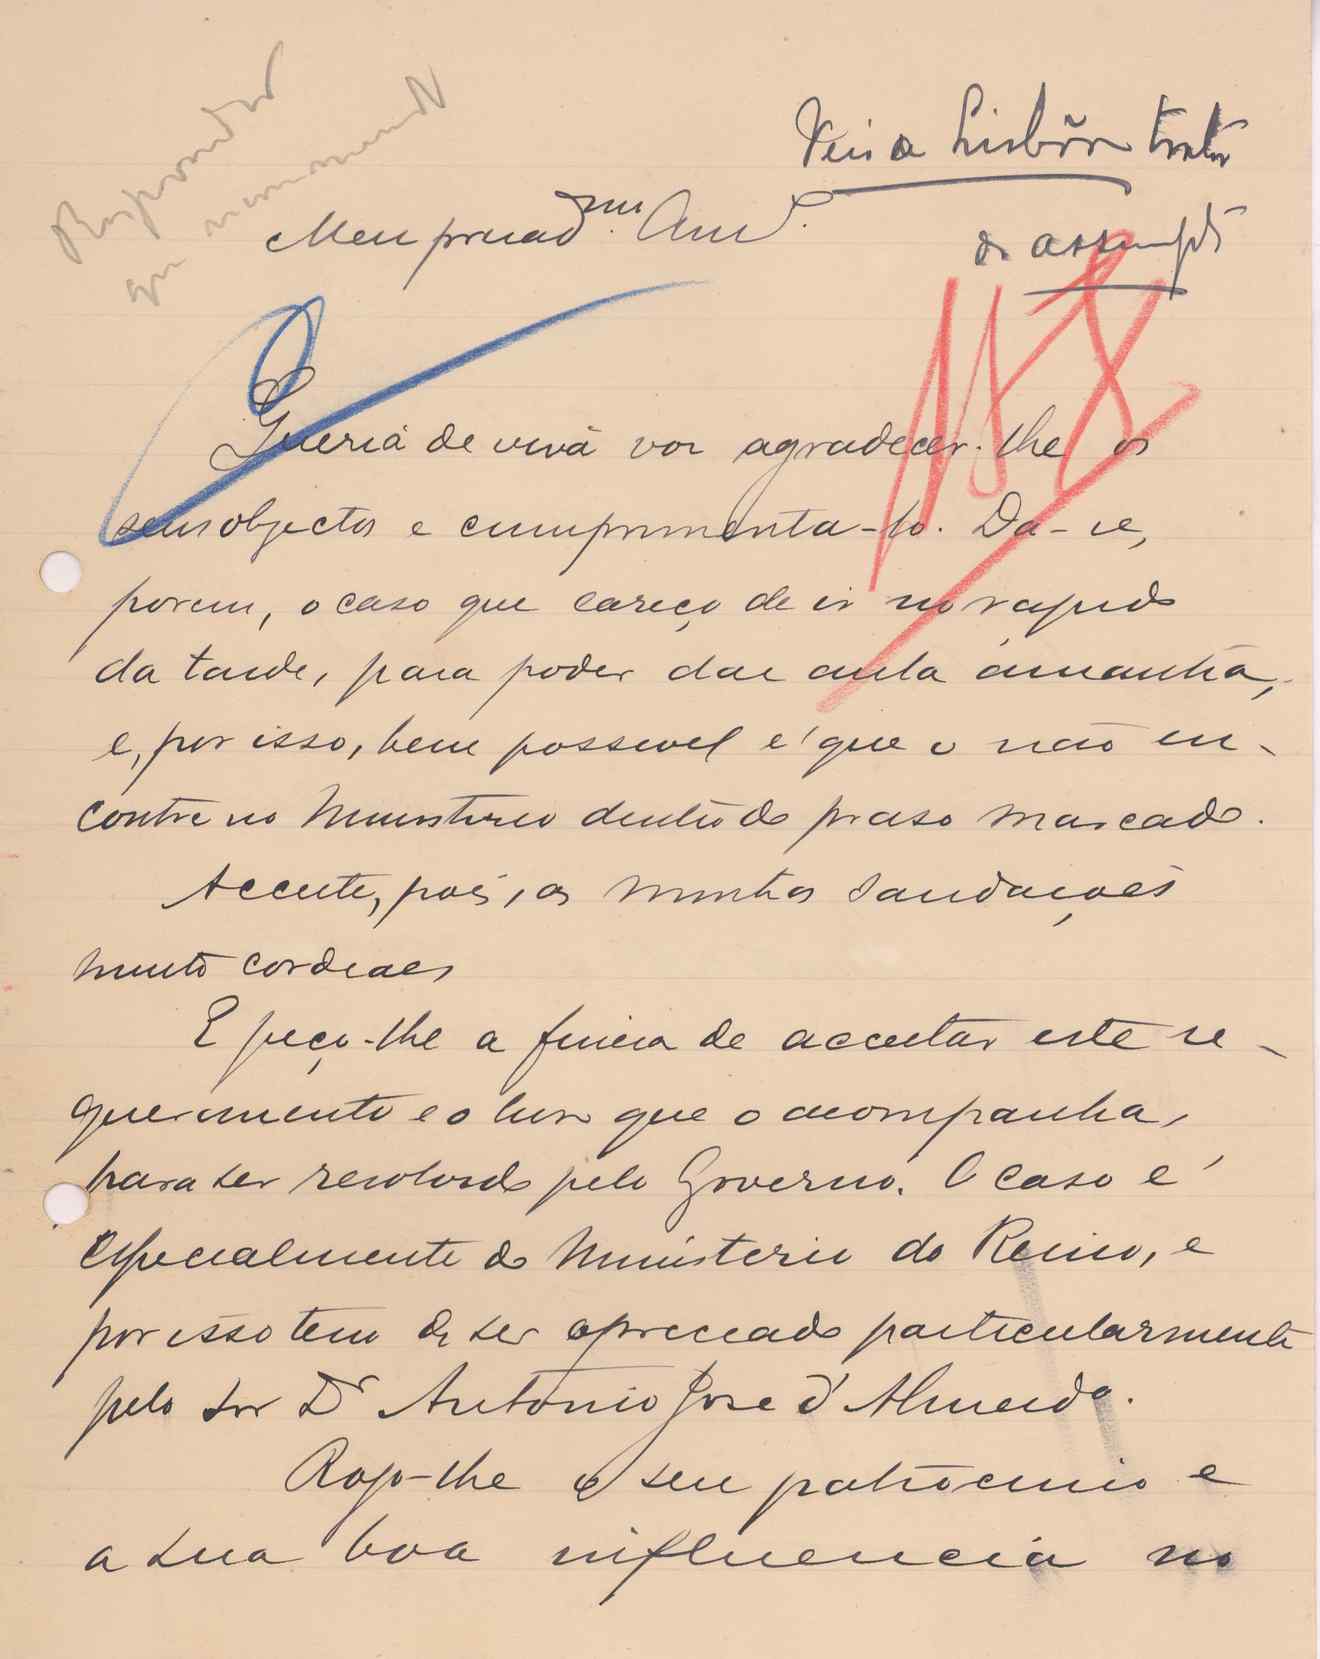 Responder
que recommendo
Veio a Lisbôa tratar
do assumpto
Meu presad.mo Am.o
Queria de viva voz agradecer-lhe os
seus objectos e cumprimenta-lo. Da-se,
porem, o caso que careço de ir no rapido
da tarde, para poder dar aula ámanhã,
e, por isso, bem possivel é que o não en-
contre no Ministerio dentro do praso marcado.
Acceite, pois, as minhas saudações
muito cordeaes
E peço-lhe a fineza de acceitar este re-
querimento e o livro que o acompanha,
para ser resolvido pelo Governo. O caso é
especialmente do Ministerio do Reino, e
por isso tem de ser apreciado particularmente
pelo Snr Dr Antonio José d'Almeida.
Rogo-lhe o seu patrocinio e
a sua boa influencia no